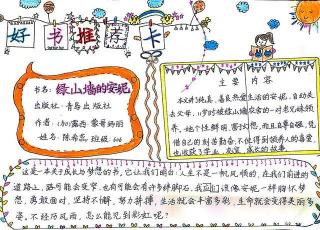 好书推荐卡
书名：绿山墙的安妮
出版社：青岛出版社
作者：(加)露西·蒙哥玛丽
姓名：陈希蕊 班级：606
主要内容
本文讲纯真、善良热爱生活的安妮，自幼失
去父母，11岁时被绿山墙农舍的一对老兄妹领
养，她个性鲜明，富于幻想，而且自尊自强，凭
借自己的刻苦勤奋，不但得到领养人的喜爱
也收获了学业、友谊，成长的故事
这是一本关于成长与梦想的书，它让我们明白：人生不是一帆风顺的，在我们前进的
道路上，路可能会变窄，也有可能会有许多绊脚石，我们应该像安妮一样胸怀梦
想，勇敢面对，坚持不懈，努力拼搏，生活就会丰富多彩，生命就会变得美丽多
姿，不经历风雨，怎么能见到彩虹呢？